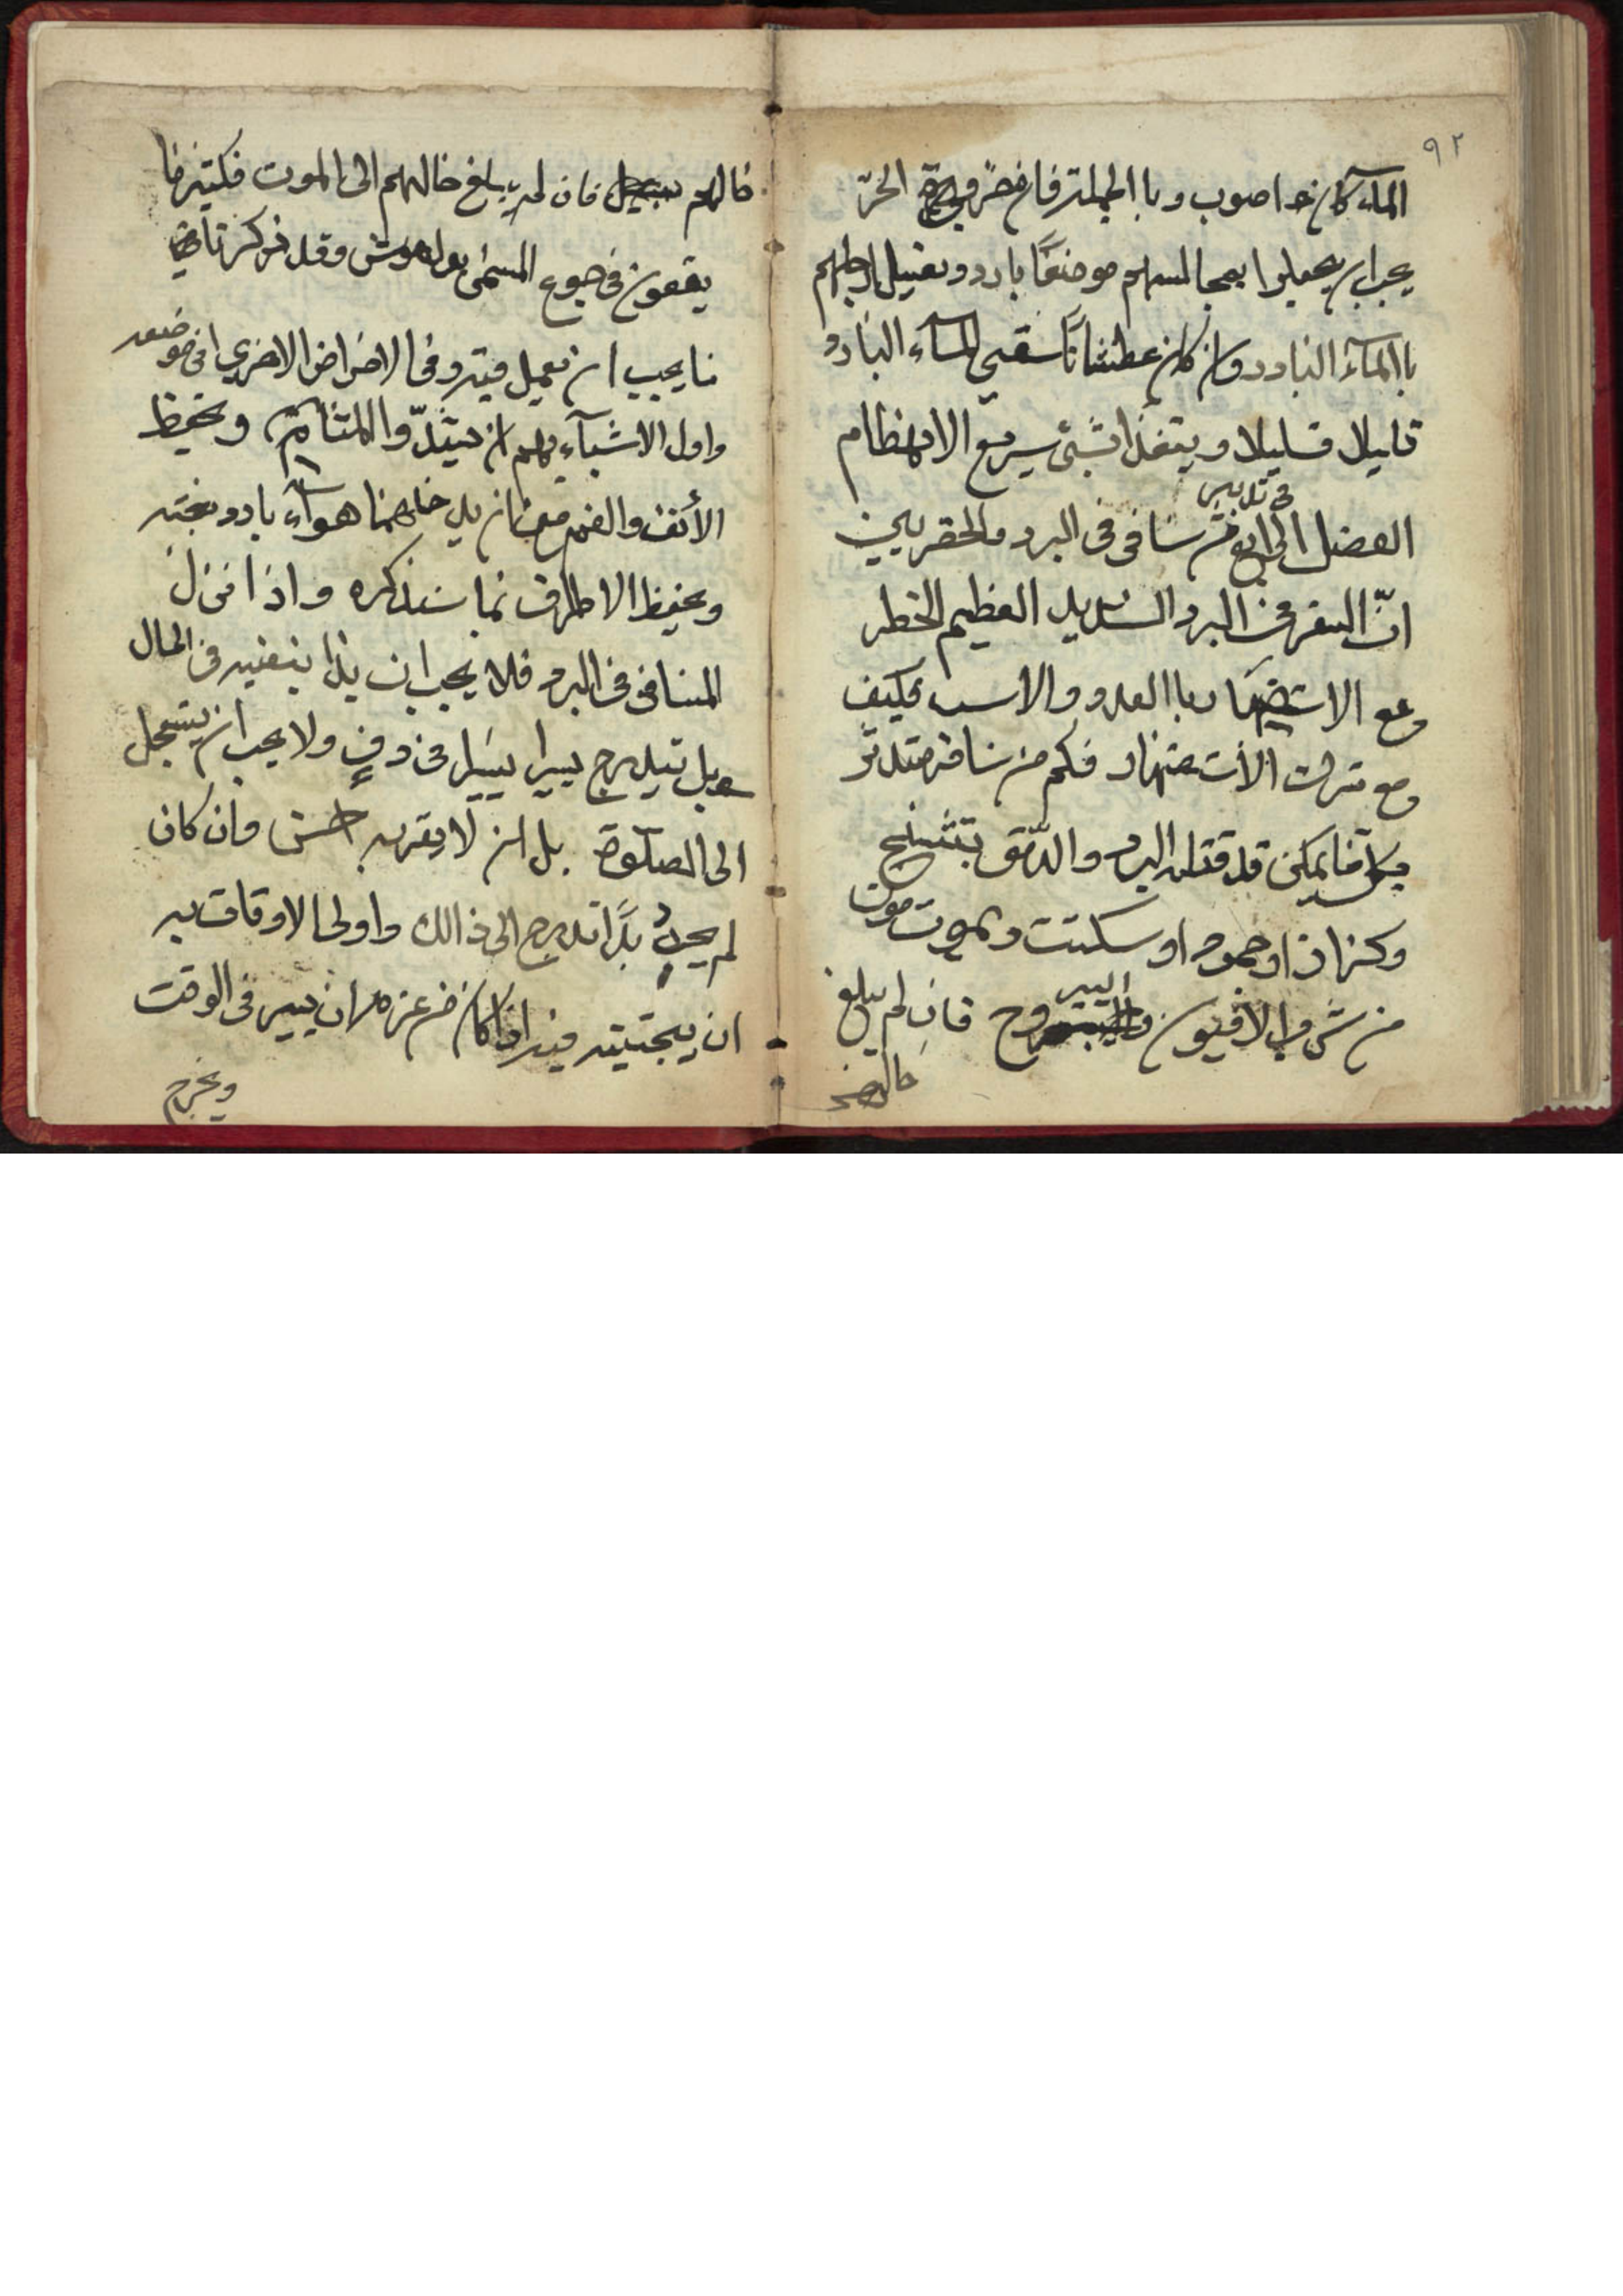 ٩٢
الماء كان اصوب وبا الجملة فان الحرّ
يجب ان يجعلوا مجالسهم موضعًا باردا وتغسيل ارجلهم
با المآء البارد وان كان عطشانًا سقي المآء البارد
قليلا قليلا ويتغذا بشئ سريع الانهظام
الفصل الرابع في تدبير من سافر في البرد
انّ السفر في البرد الشديد العظيم الخطر
مع الاستضهار با العدد والاسب فكيف
مع ترك الأستضهار فكم من سافر متدثر
بكل ما يمكن قد قتله البرد والدّمق بتشنج
وكزاز او جمود او سكتت ويموت موت
من شرب الافيون واليبروح فان لم يبلغ
حالهم
حالهم فان لم يبلغ حالهم الى الموت فكثير ما
يقعون في جوع المسمى بوليموس وقد ذكرنا
ما يجب ان نعمل فيه وفي الامراض الاخرى في موضعه
واول الاشيآء بهم ان يسدّوا المسامّ ويحفظ
الأنف والفم من ان يدخلهما هوآء بارد بغتة
ويحفظ الاطراف بما سنذكره واذا نزل
المسافر في البرد فلا يجب ان يدفئ نفسه في الحال
بل يتدرج يسيرا يسيرا في دفءٍ ولا يجب ان يستعجل
الى الصلوة بل ان لا يقربه احسن وان كان
لم يجد بدًّا تدرج الى ذالك واولى الاوقات به
ان يجتنبه فيه اذا كان من عزمه ان يسير في الوقت
ويخرج